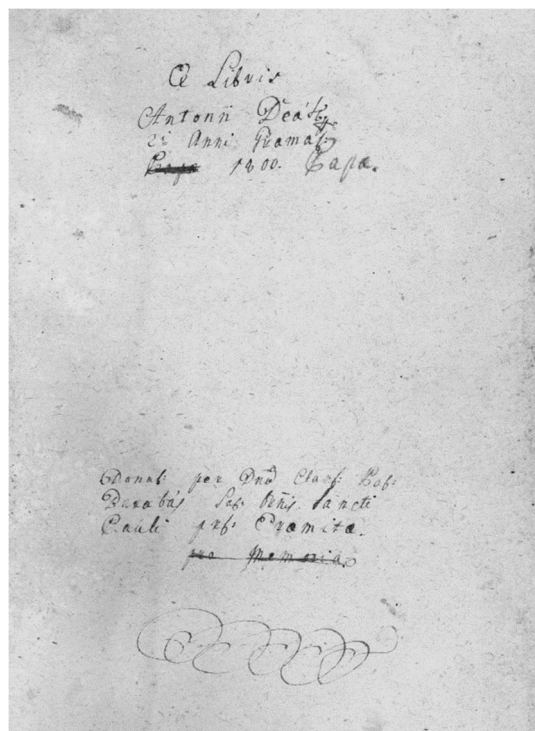 Ex Libris
Antonii Deák
2i Anni Gramat:
1800. Papæ.
Donat: per Dnũ
Barabás Ord̃nis Sancti
Pauli pri: Eremitæ.
pro Memoria.